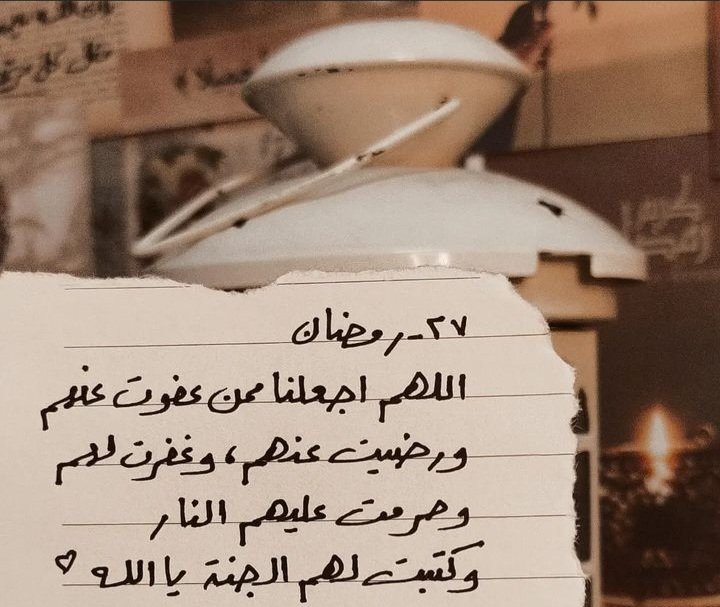 ٢٧-رمضان
اللهم اجعلنا ممن عفوت عنهم
ورضيت عنهم، وغفرت لهم
وحرمت عليهم النار
وكتبت لهم الجنة يا الله ♡